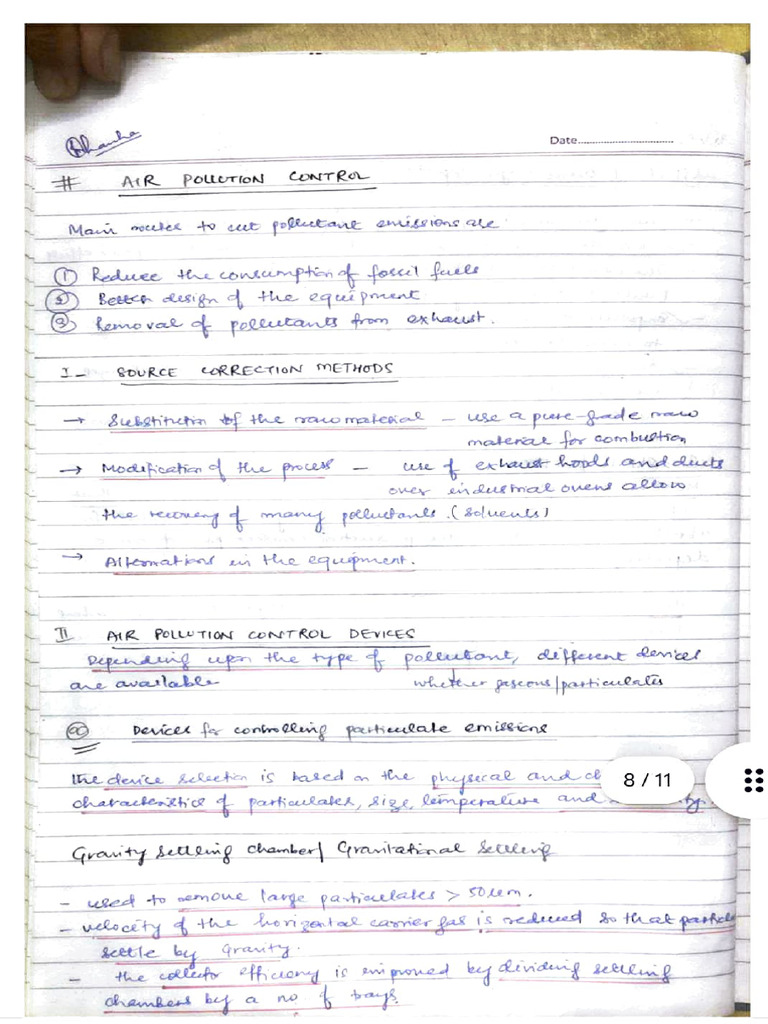 Date
# AIR POLLUTION CONTROL
Main routes to cut pollutant emissions are
① Reduce the consumption of fossil fuels
② Better design of the equipment
③ Removal of pollutants from exhaust.
I - SOURCE CORRECTION METHODS
→ Substitution of the raw material - use a pure-grade raw
material for combustion
→ Modification of the process - use of exhaust hoods and ducts
over industrial ovens allow
the recovery of many pollutants. (solvents)
→ Alternations in the equipment.
II AIR POLLUTION CONTROL DEVICES
Depending upon the type of pollutant, different devices
are available whether gaseous/particulates
Devices for controlling particulate emissions
the device selection is based on the physical and
8 / 11
characteristics of particulates, size, temperature and
Gravity settling chamber/ Gravitational settling
- used to remove large particulates > 50um.
- velocity of the horizontal carrier gas is reduced so that particle
settle by gravity.
- the collector efficiency is improved by dividing settling
chambers by a no. of trays.